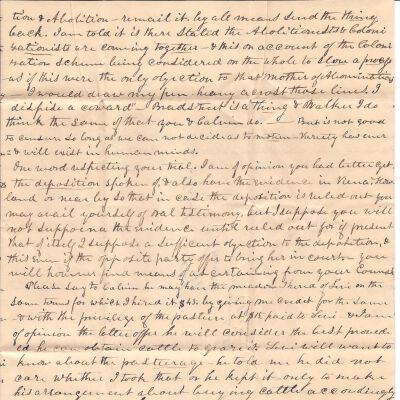 tion & Abolition – remail it by all means send the thing
back. I am told it is there stated the Abolitionists & Coloni
zationists are coming together – & this on account of the Coloni
zation scheme being considered on the whole to slow a process
as if this were the only objection to that "mother of Abominations
I would draw my pen heavy across those lines. I
dispise a coward – Bradstreet is a thing & Walker I do
think the same of that you & Calvin do. – But is not good
to censure so long as we can not decide as to motive – Variety has ever
& will exist in human minds.
One word respecting your trial. I am of opinion you had better get
the deposition spoken of, & also have the evidence in Vienna, How
land or near by so that in case the deposition is ruled out you
may avail yourself of oral testimony, but I suppose you will
not suppoena the evidence until ruled out for if present
that of itself I suppose a sufficent objection to the deposition, &
this even if the opposite party offer to bring her in court – you
will however find means of ascertaining from your Counsel
Please say to Calvin he may have the meadow I hired of Levi on the
same terms for which I hired it $45. by giving me credit for the same
& with the privilege of the pasture at $15 paid to Levi – & I am
of opinion the latter offer he will consider the best provid
ed he can obtain cattle to graze it. Levi will want to
know about the pasturage he told me he did not
care whether I took that or he kept it only to make
his arrangement about buying cattle accordingly